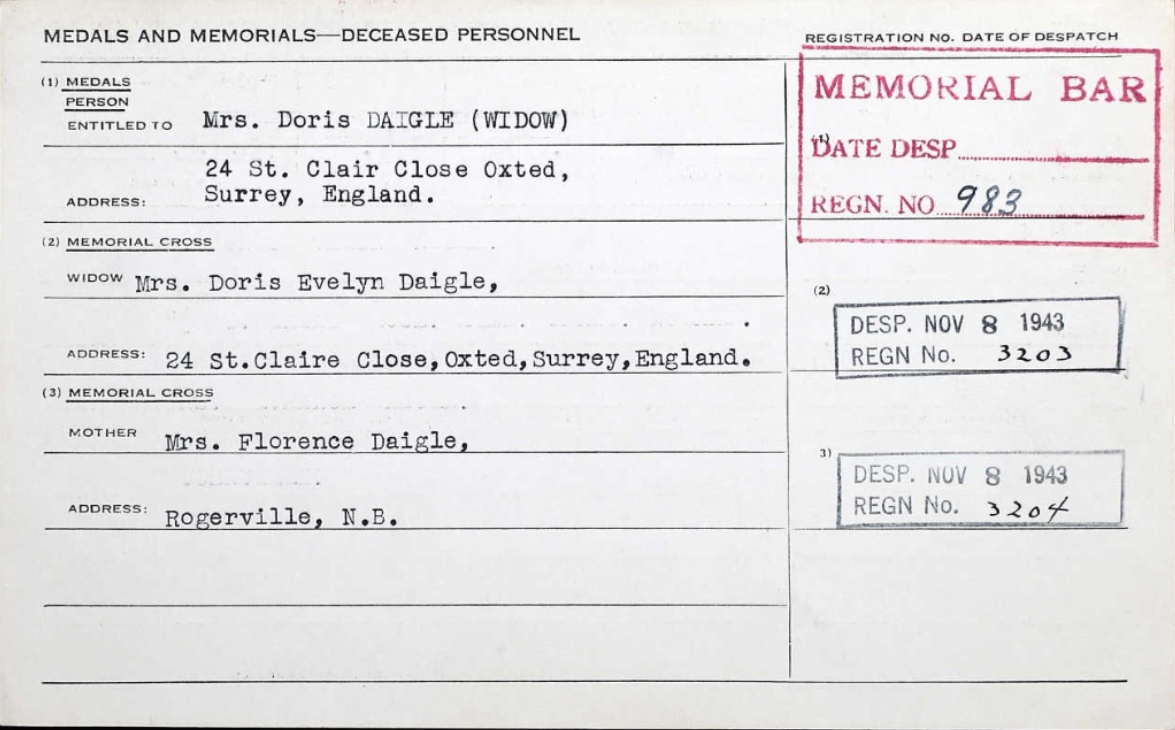 MEDALS AND MEMORIALS—DECEASED PERSONNEL
REGISTRATION NO. DATE OF DESPATCH
(1) MEDALS
PERSON
ENTITLED TO Mrs. Doris DAIGLE (WIDOW)
24 St. Clair Close Oxted,
ADDRESS: Surrey, England.
MEMORIAL BAR
DATE DESP
REGN. NO 983
(2) MEMORIAL CROSS
WIDOW Mrs. Doris Evelyn Daigle,
ADDRESS: 24 St.Claire Close,Oxted,Surrey,England.
(2)
DESP. NOV 8 1943
REGN No. 3203
(3) MEMORIAL CROSS
MOTHER Mrs. Florence Daigle,
ADDRESS: Rogerville, N.B.
3)
DESP. NOV 8 1943
REGN No. 3204